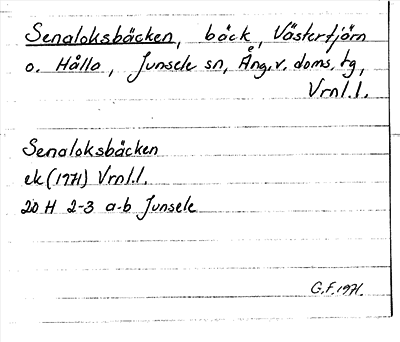 Senaloksbäcken, bäck, Västertjärn
o. Hålla, Junsele sn, Ång. v. doms. tg,
Vrnl.l.
Senaloksbäcken
ek (1971) Vrnl.l.
20 H 2-3 a-b Junsele
G.F. 1971.